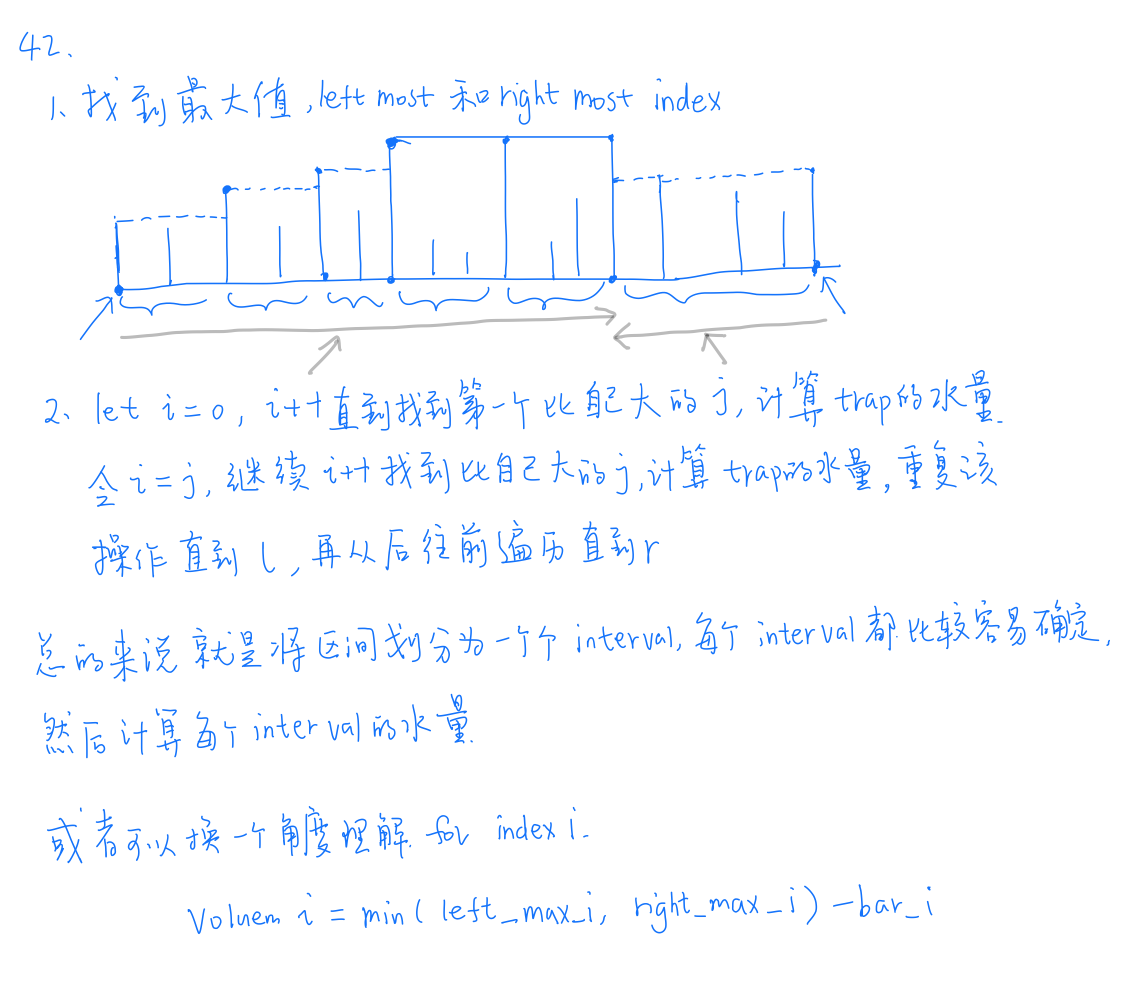 42.
1、找到最大值,left most 和 right most index
2、let i=0, i++直到找到第一个比自己大的j,计算trap的水量.
令i=j,继续i++找到比自己大的j,计算trap的水量,重复该
操作直到l,再从后往前遍历直到r
总的来说就是将区间划分为一个个interval,每个interval都比较容易确定,
然后计算每个interval的水量
或者可以换一个角度理解. for index i.
Voluem i = min( left_max_i, right_max_i) -bar_i